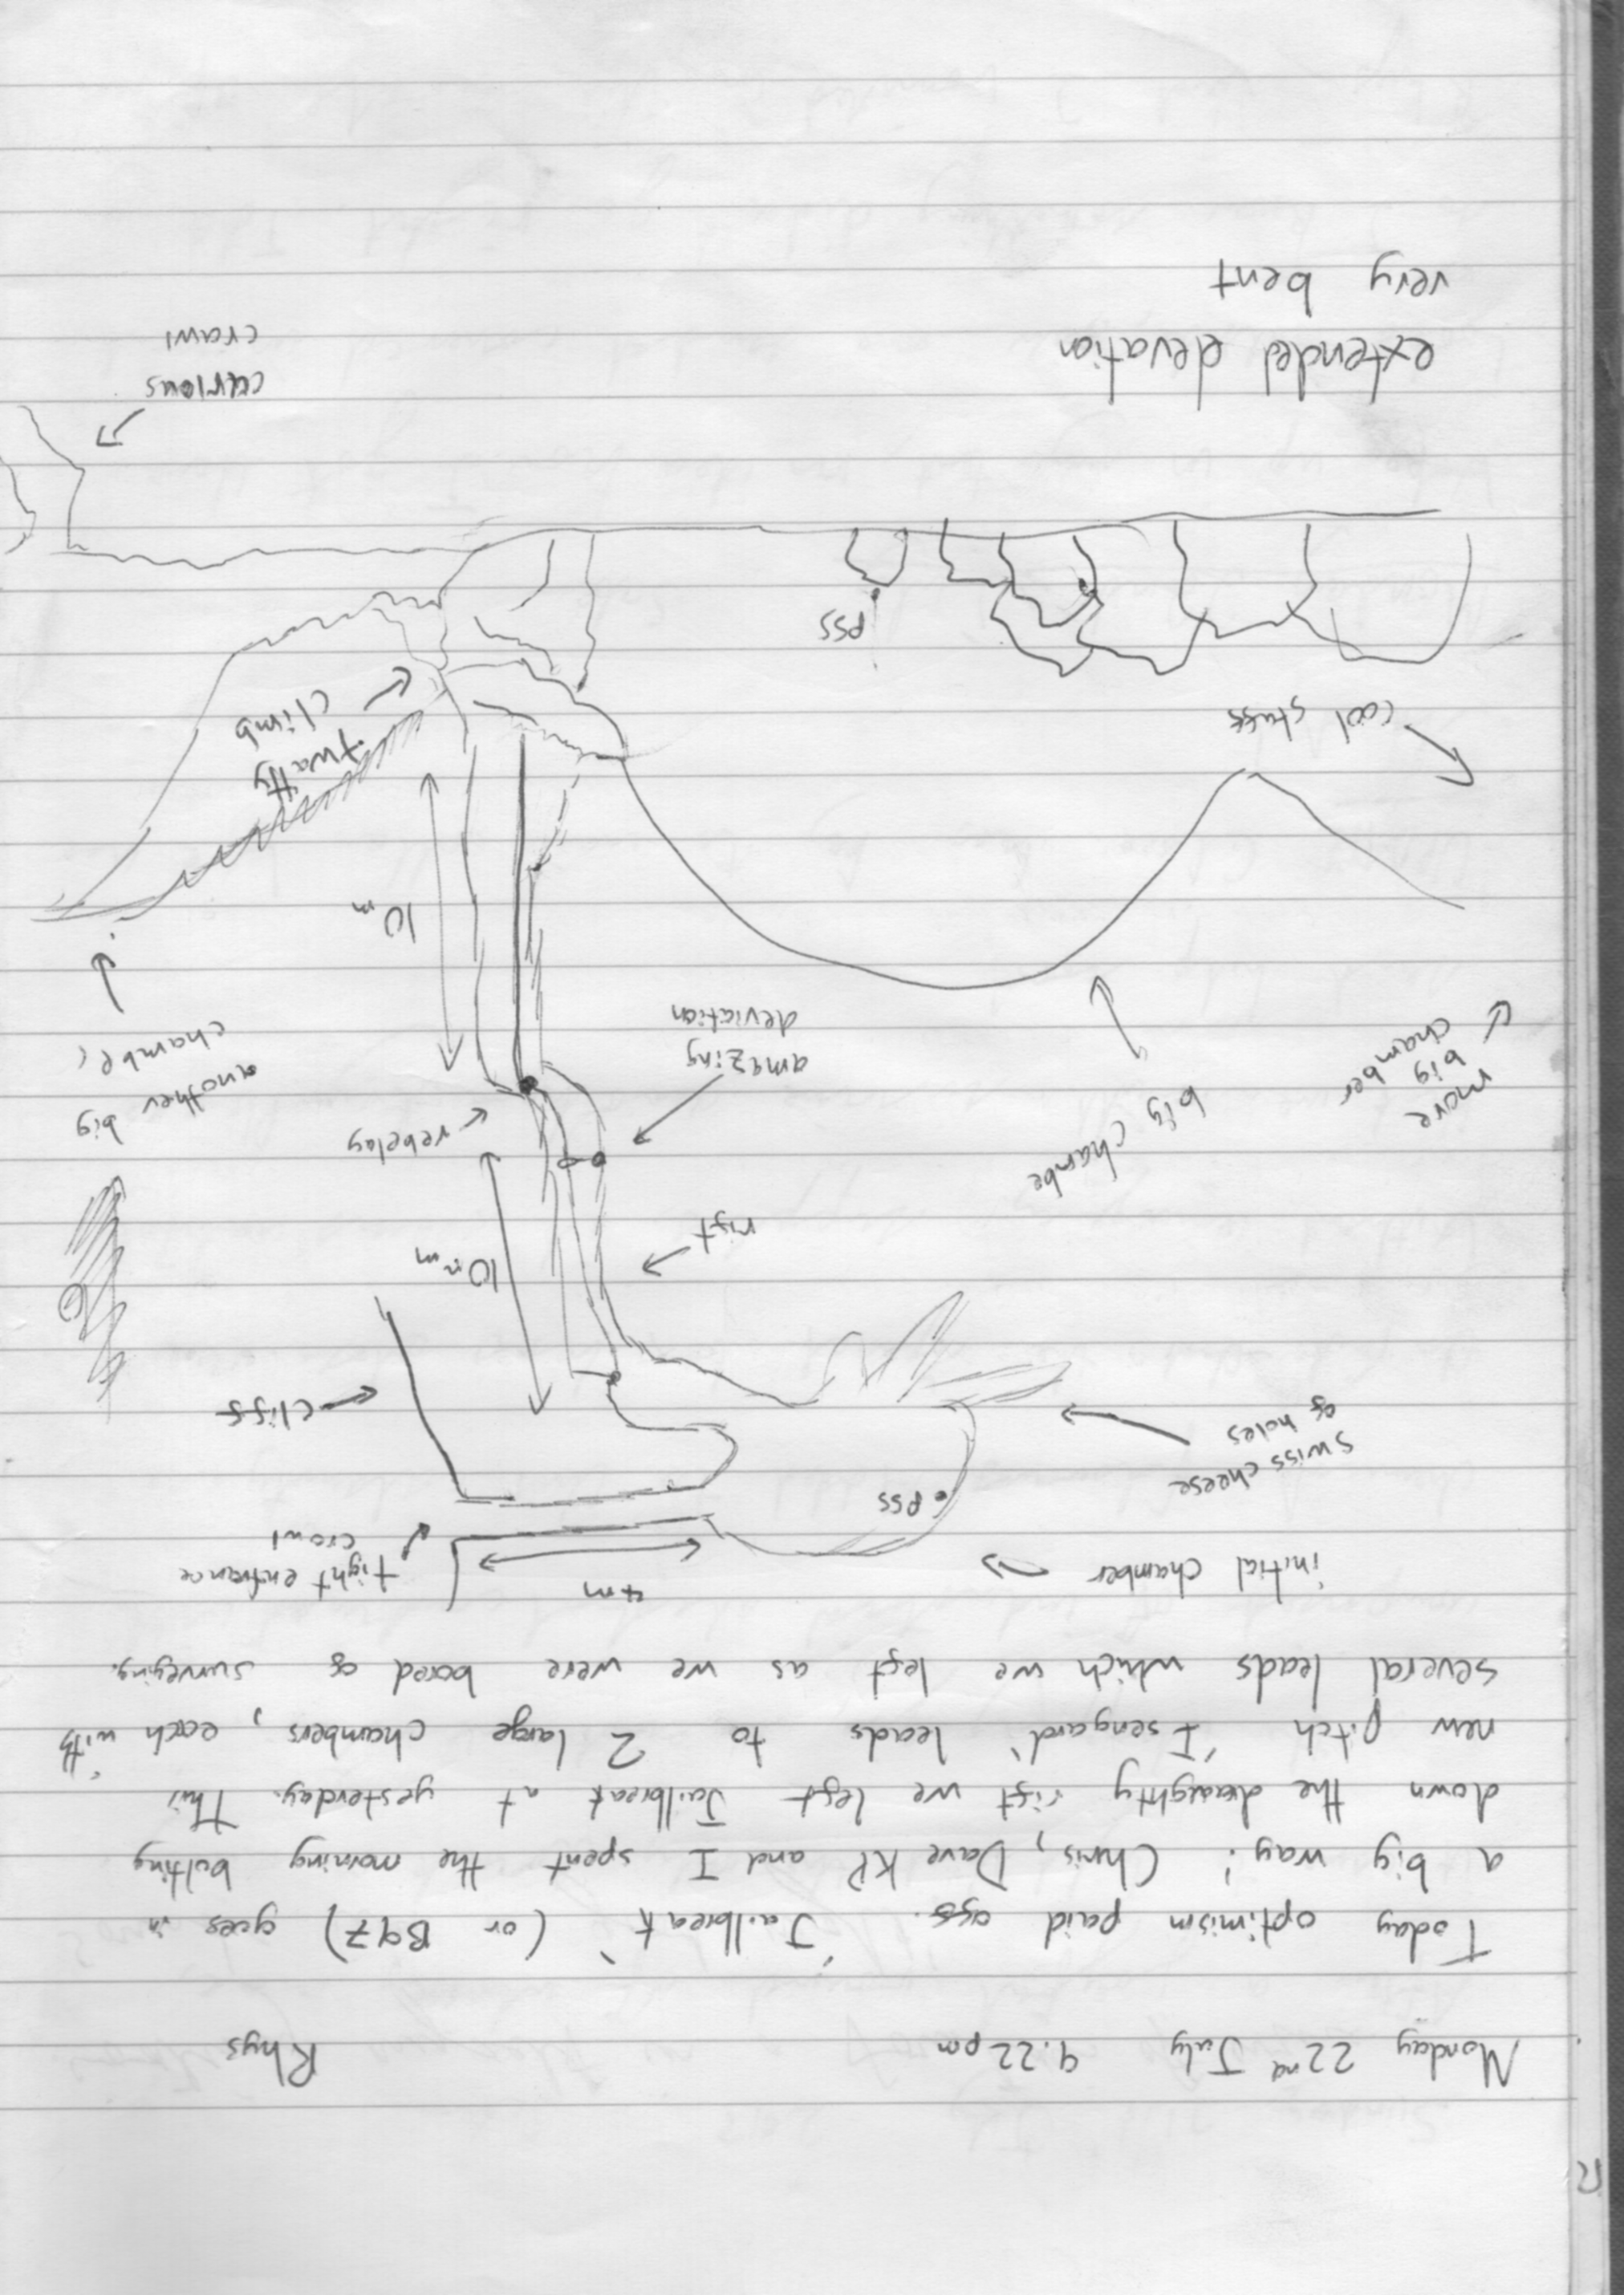 Monday 22nd July 9.22pm Rhys
Today optimism paid off. 'Jailbreak' (or B97) goes in
a big way! Chris, Dave KP and I spent the morning bolting
down the draughty rift we left Jailbreak at yesterday. This
new pitch 'Isengard' leads to 2 large chambers, each with
several leads which we left as we were bored of surveying.
initial chamber
4m
tight entrance
crawl
PSS
swiss cheese
of holes
cliff
10m
rift
rebelay
amazing
deviation
big chambe
more
big
chamber
another big
chamber
10m
twatty
climb
cool stuff
PSS
curious
crawl
extended elevation
very bent